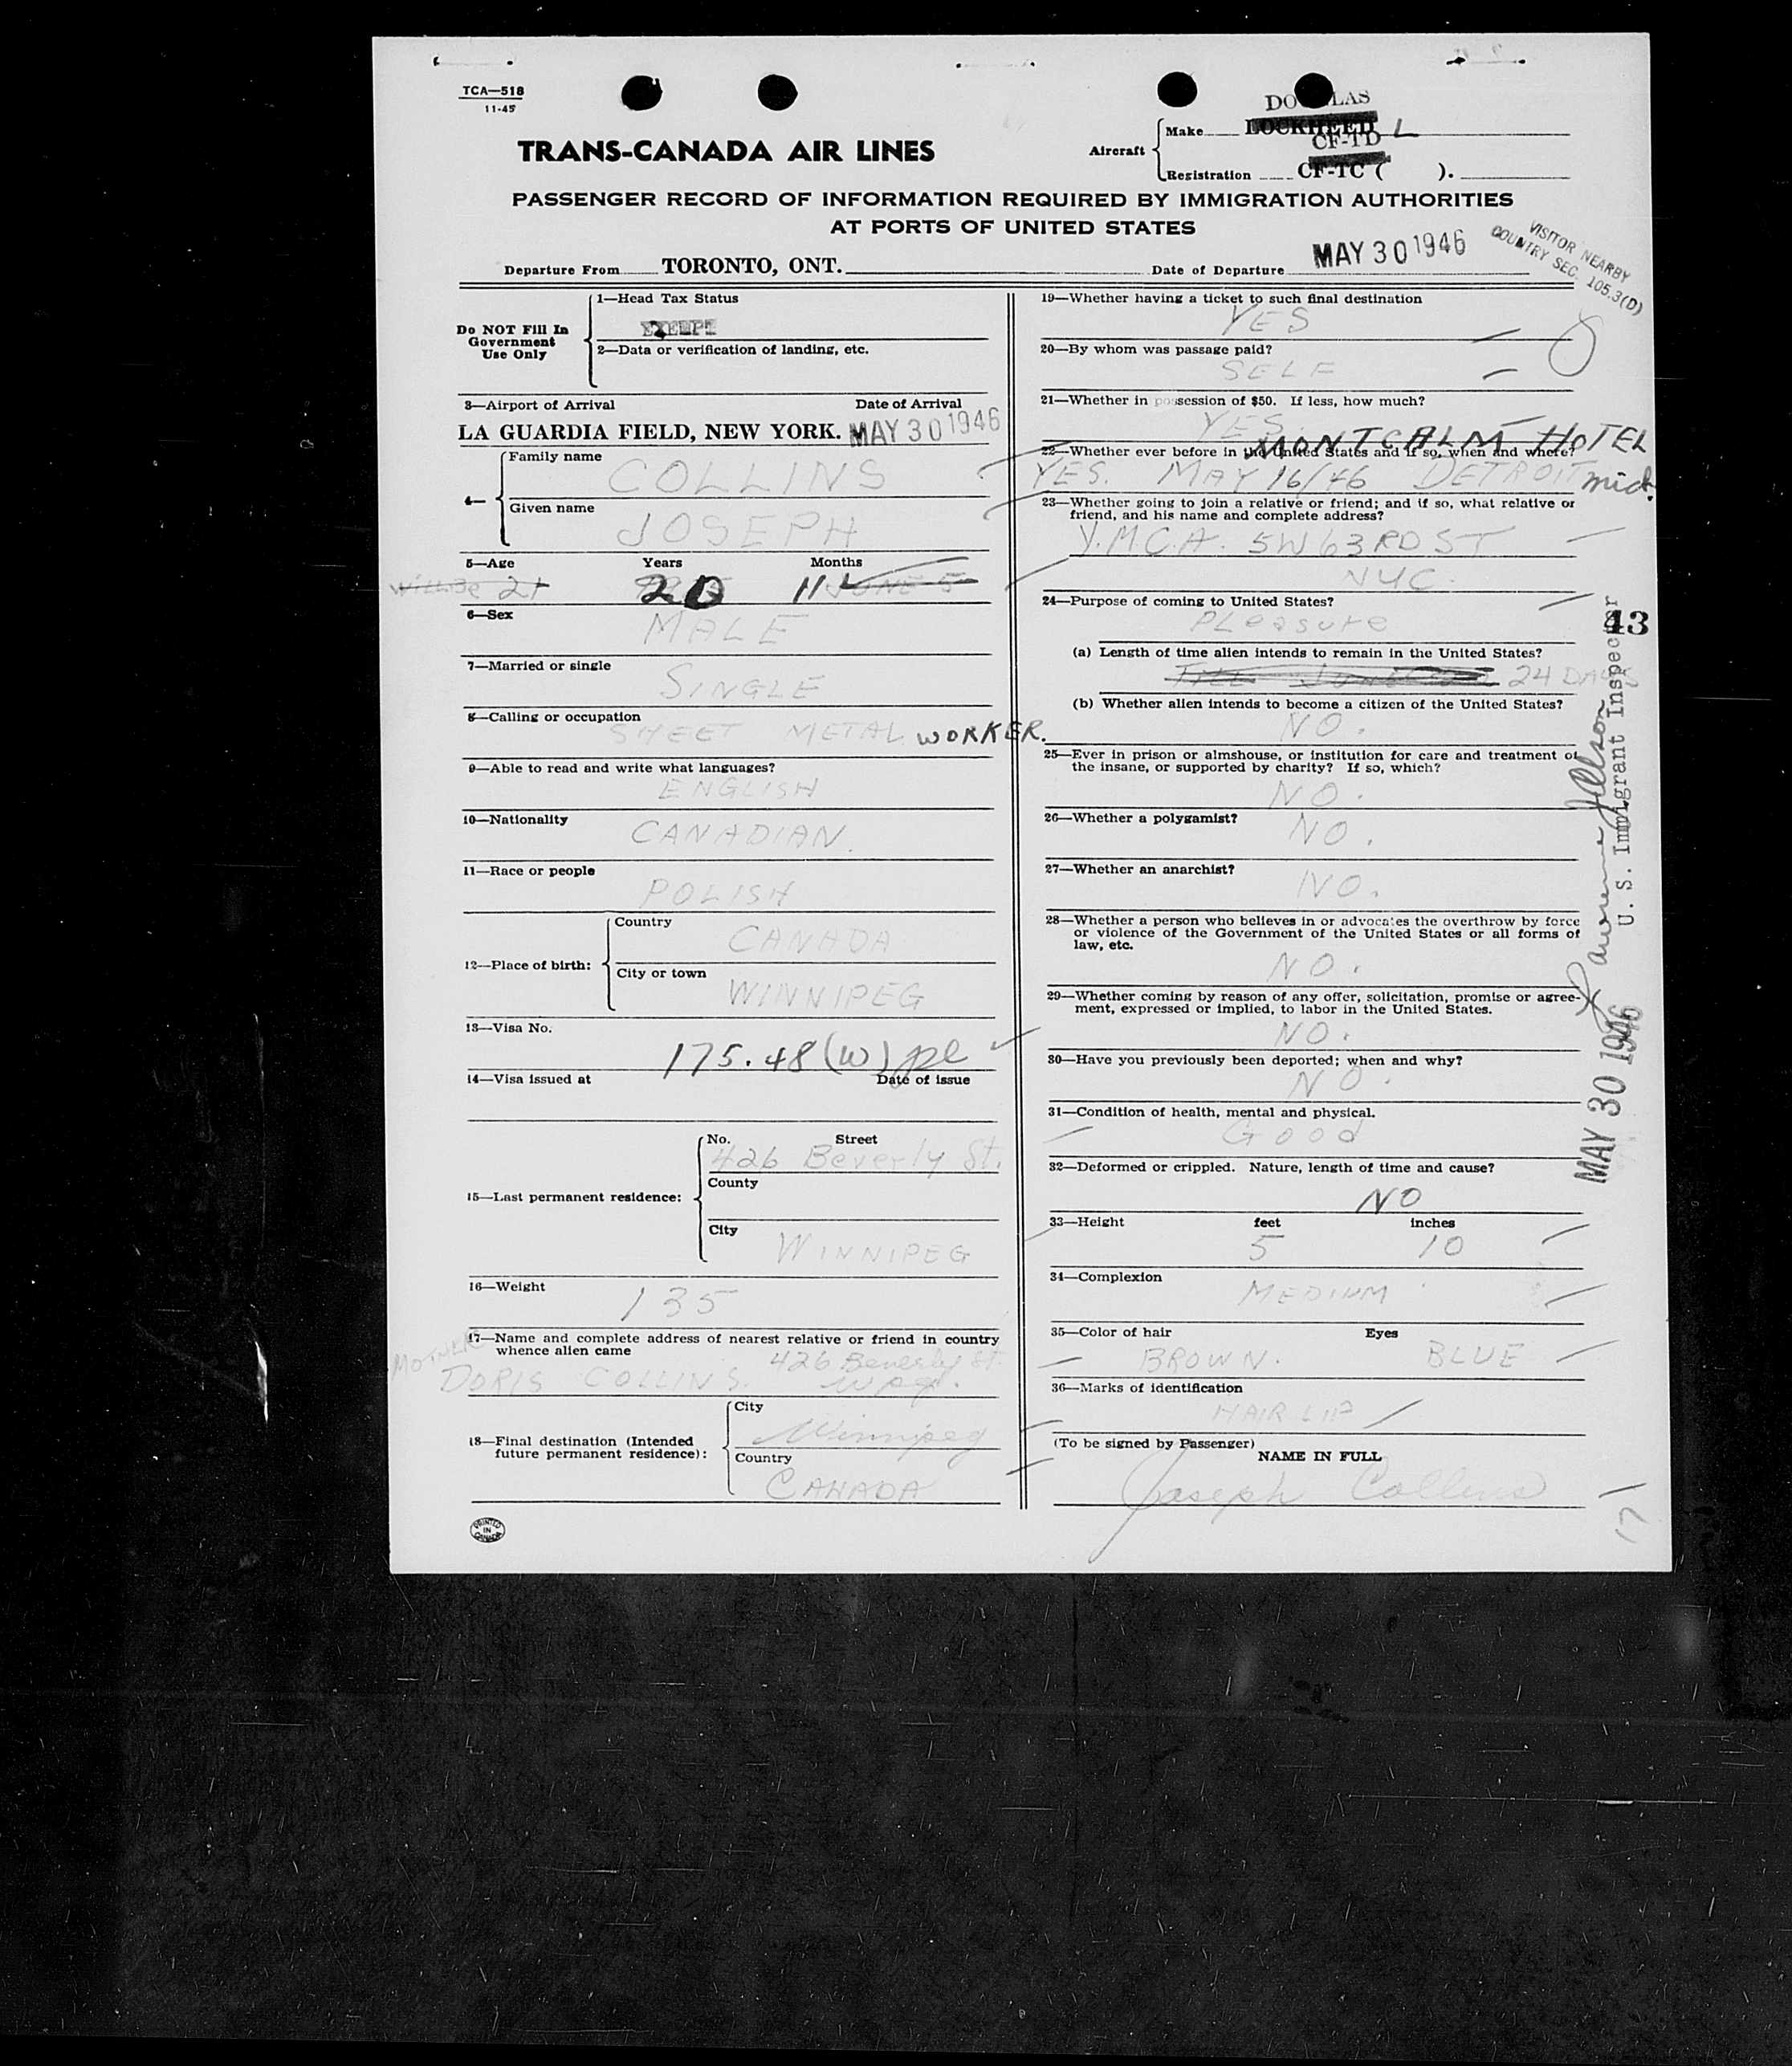 TCA—518
11-45
DOUGLAS
Aircraft
Make LOCKHEED L
CF-TD
Registration CF-TC ( ).
TRANS-CANADA AIR LINES
PASSENGER RECORD OF INFORMATION REQUIRED BY IMMIGRATION AUTHORITIES
AT PORTS OF UNITED STATES
Departure From TORONTO, ONT.
Date of Departure MAY 30 1946
VISITOR NEARBY
COUNTRY SEC. 105.3(D)
Do NOT Fill In
Government
Use Only
1—Head Tax Status
EXEMPT
2—Data or verification of landing, etc.
3—Airport of Arrival Date of Arrival
LA GUARDIA FIELD, NEW YORK. MAY 30 1946
4—
Family name
COLLINS
Given name
JOSEPH
5—Age Years Months
Will Be 21 20 11 JUNE 5
6—Sex
MALE
7—Married or single
SINGLE
8—Calling or occupation
SHEET METAL WORKER.
9—Able to read and write what languages?
ENGLISH
10—Nationality
CANADIAN.
11—Race or people
POLISH
12—Place of birth:
Country
CANADA
City or town
WINNIPEG
13—Visa No.
175.48 (W)
14—Visa issued at Date of issue
15—Last permanent residence:
No. Street
426 Beverly St.
County
City
WINNIPEG
16—Weight
135
17—Name and complete address of nearest relative or friend in country
whence alien came
MOTHER
DORIS COLLINS. 426 Beverly St.
Wpg.
18—Final destination (Intended
future permanent residence):
City
Winnipeg
Country
CANADA
PRINTED
IN
CANADA
19—Whether having a ticket to such final destination
YES
20—By whom was passage paid?
SELF
21—Whether in possession of $50. If less, how much?
YES.
MONTCALM HOTEL
22—Whether ever before in the United States and if so, when and where?
YES. MAY 16/46 DETROIT Mich.
23—Whether going to join a relative or friend; and if so, what relative or
friend, and his name and complete address?
Y.M.C.A. 5W 63RD ST
NYC.
24—Purpose of coming to United States?
Pleasure
(a) Length of time alien intends to remain in the United States?
24 DAYS
(b) Whether alien intends to become a citizen of the United States?
NO.
25—Ever in prison or almshouse, or institution for care and treatment of
the insane, or supported by charity? If so, which?
NO.
26—Whether a polygamist?
NO.
27—Whether an anarchist?
NO.
28—Whether a person who believes in or advocates the overthrow by force
or violence of the Government of the United States or all forms of
law, etc.
NO.
29—Whether coming by reason of any offer, solicitation, promise or agree-
ment, expressed or implied, to labor in the United States.
NO.
30—Have you previously been deported; when and why?
NO.
31—Condition of health, mental and physical.
Good
32—Deformed or crippled. Nature, length of time and cause?
NO
33—Height feet inches
5 10
34—Complexion
MEDIUM
35—Color of hair Eyes
BROWN. BLUE
36—Marks of identification
HAIR LIP
(To be signed by Passenger)
NAME IN FULL
Joseph Collins
43
U. S. Immigrant Inspector
MAY 30 1946
17